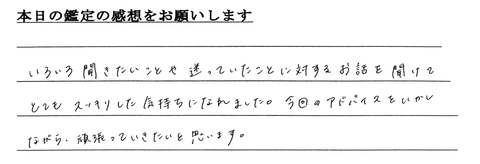 本日の鑑定の感想をお願いします
いろいろ聞きたいことや迷っていたことに対するお話を聞けて
とてもスッキリした気持ちになれました。今回のアドバイスをいかし
ながら、頑張っていきたいと思います。